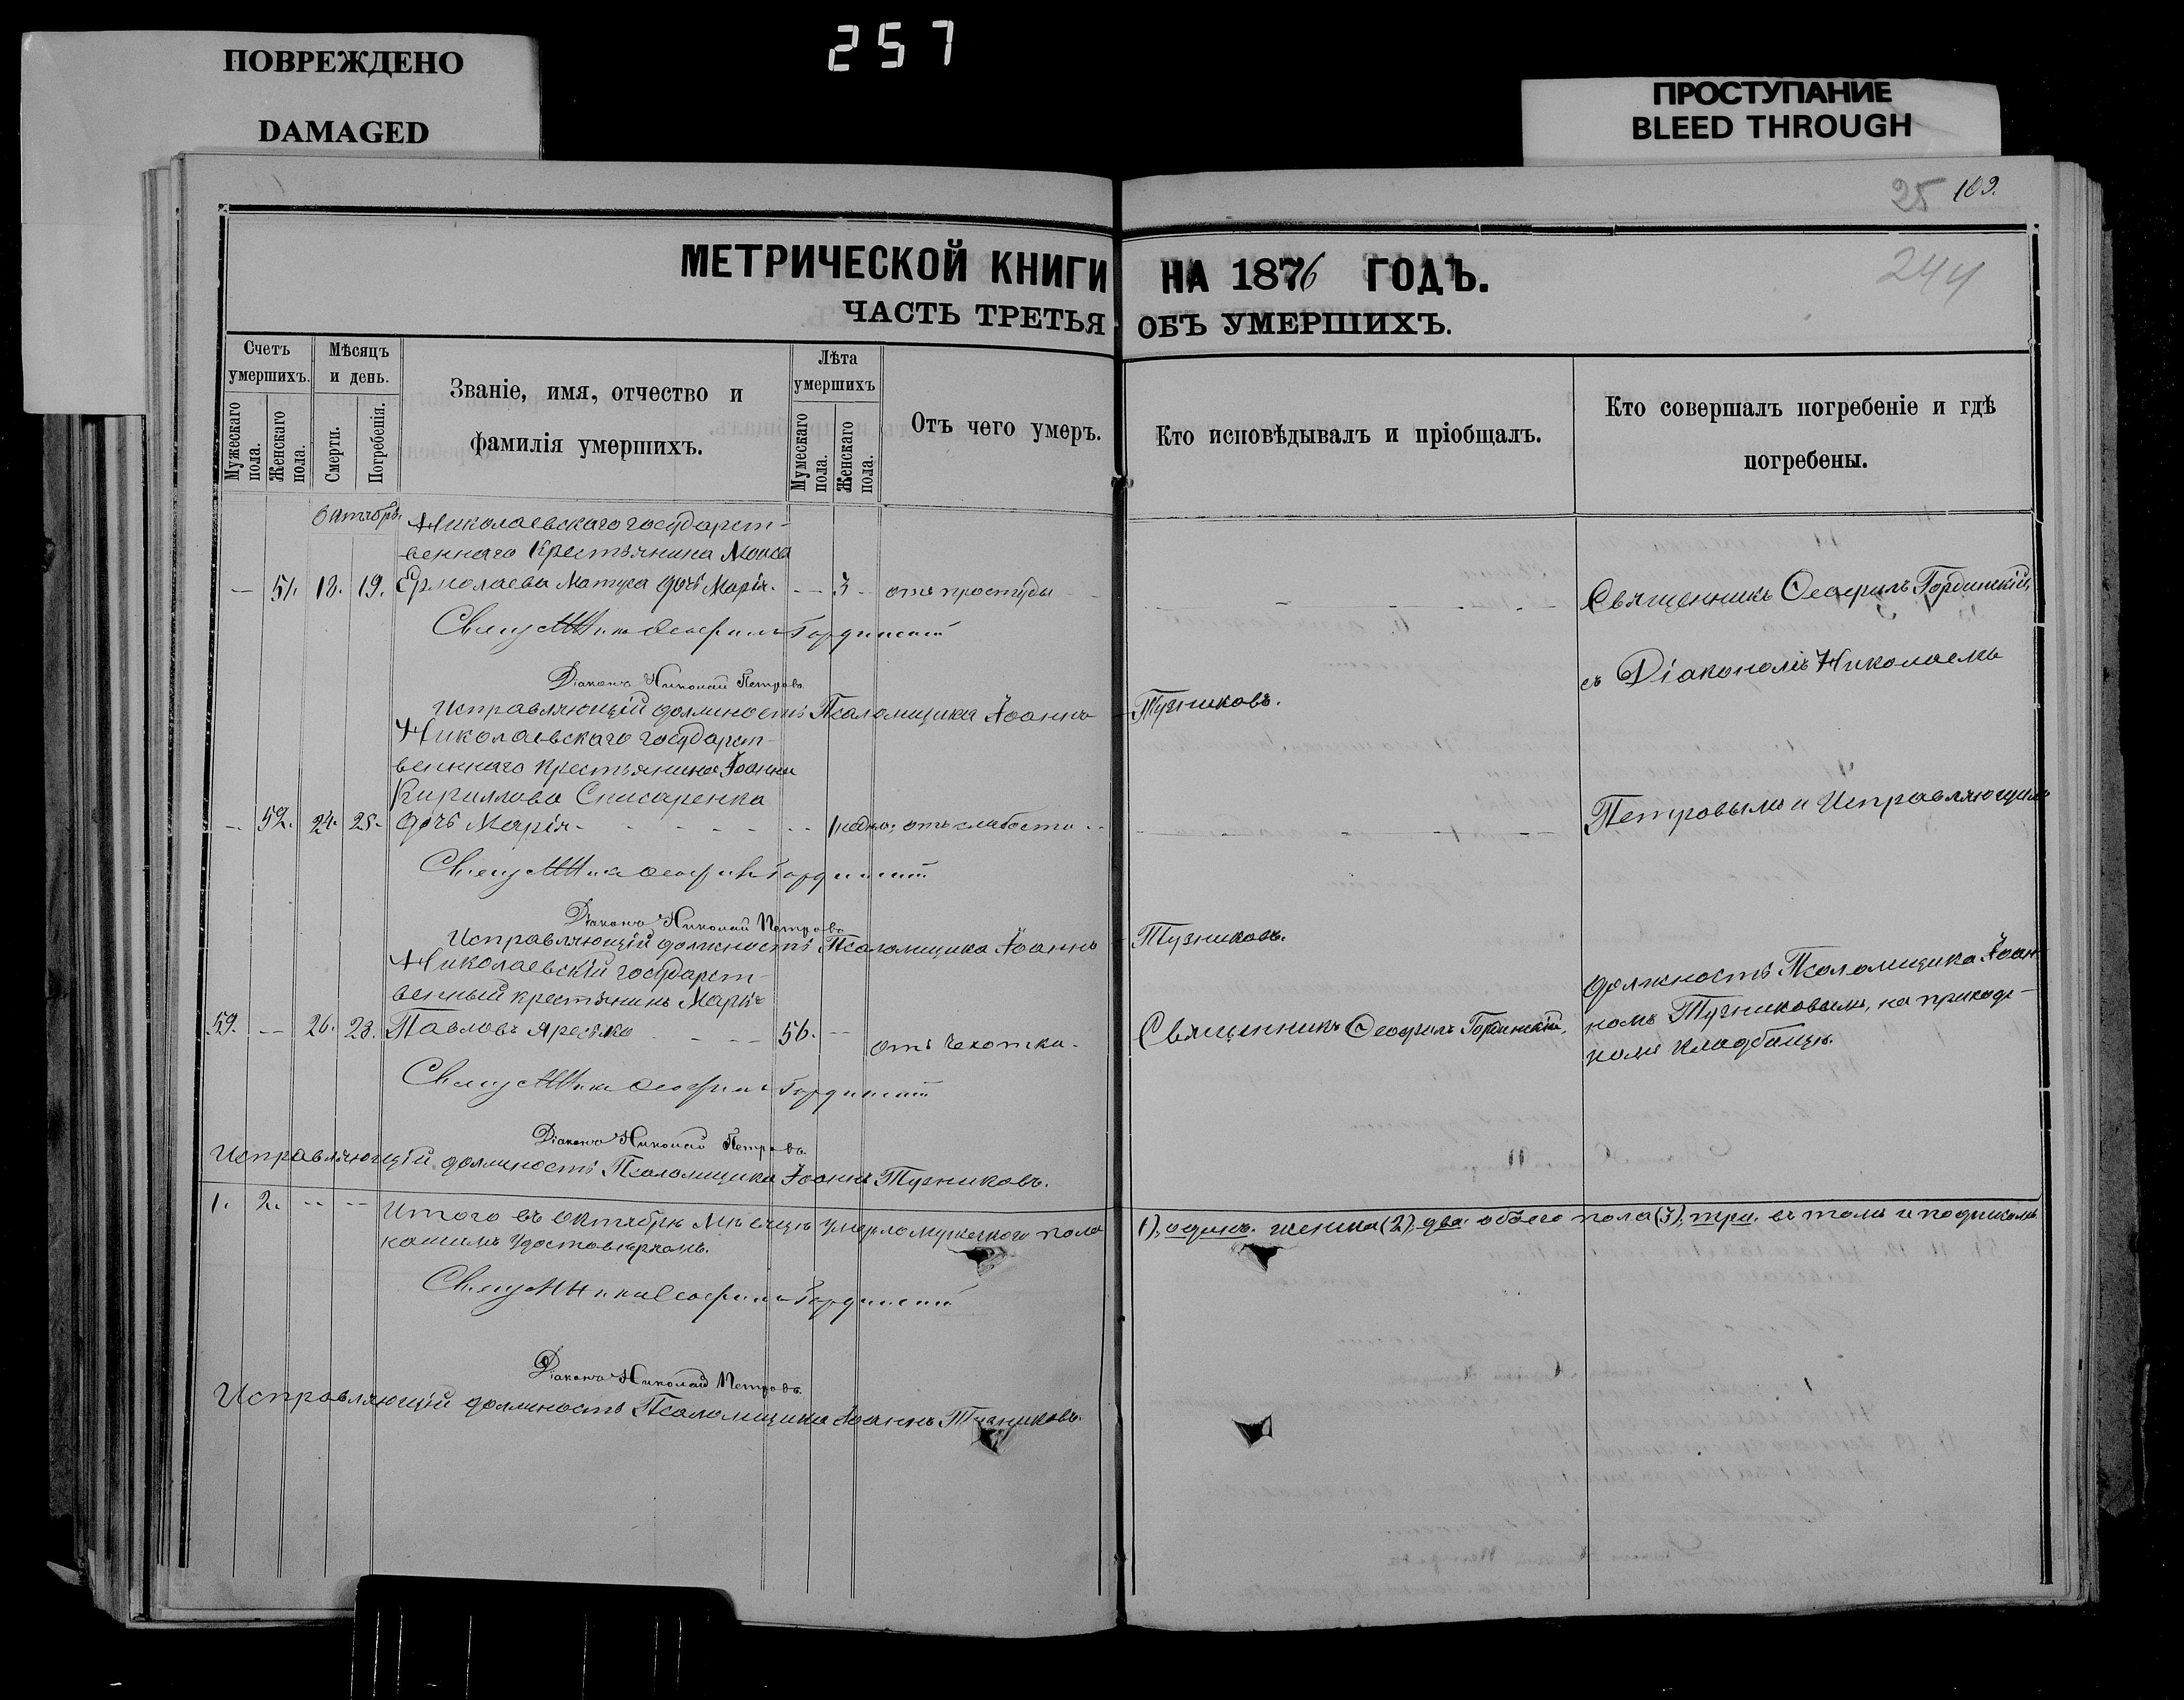 257
ПОВРЕЖДЕНО
DAMAGED
ПРОСТУПАНИЕ
BLEED THROUGH
25 109.
244
МЕТРИЧЕСКОЙ КНИГИ НА 1876 ГОДЪ.
ЧАСТЬ ТРЕТЬЯ ОБЪ УМЕРШИХЪ.
Счетъ умершихъ.
Мужескаго пола.
Женскаго пола.
Мѣсяцъ и день.
Смерти.
Погребенія.
Званіе, имя, отчество и
фамилія умершихъ.
Лѣта умершихъ
Мумескаго пола.
Женскаго пола.
Отъ чего умеръ.
Кто исповѣдывалъ и пріобщалъ.
Кто совершалъ погребеніе и гдѣ
погребены.
Октябрь
Николаевскаго государст-
веннаго Крестьянина
51. 18. 19. Ермолаева дочь Марія. 3 отъ простуды
Священникъ Ѳеофилъ Гординскій,
Священникъ Ѳеофилъ Гординскій
съ Діакономъ Николаемъ
Діаконъ Николай Петровъ
Исправляющій должность Псаломщика Іоаннъ Тузниковъ.
Николаевскаго государст-
веннаго крестьянина Іоанна
Кириллова Снисаренка
52. 24. 25. дочь Марія отъ слабости
Петровымъ и Исправляющимъ
Священникъ Ѳеофилъ Гординскій
Діаконъ Николай Петровъ
Исправляющій должность Псаломщика Іоаннъ Тузниковъ.
Николаевскій государст-
венный крестьянинъ
59. 26. 28. Павловъ 56. отъ чахотки
Священникъ Ѳеофилъ Гординскій,
должность Псаломщика Іоан-
номъ Тузниковымъ, на приход-
комъ кладбищѣ.
Священникъ Ѳеофилъ Гординскій
Діаконъ Николай Петровъ
Исправляющій должность Псаломщика Іоаннъ Тузниковъ.
1. 2. Итого въ Октябрѣ мѣсяцѣ умерло мужскаго пола (1), одинъ. женска (2), два. обоего пола (3), три. въ томъ и подписомъ
нашимъ удостовѣряемъ.
Священникъ Ѳеофилъ Гординскій
Діаконъ Николай Петровъ
Исправляющій должность Псаломщика Іоаннъ Тузниковъ.